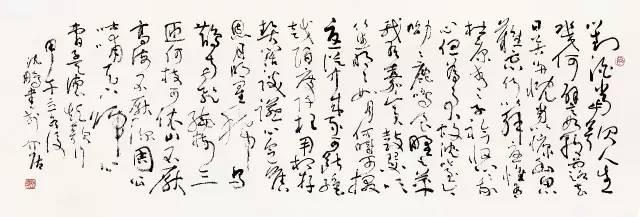 對酒當歌人生
幾何譬如朝露去
日苦多慨當以慷幽思
難忘何以解憂惟有
杜康青青子衿悠悠我
心但為君故沈吟至今
呦呦鹿鳴食野之苹
我有嘉賓鼓瑟吹
笙明明如月何時可掇
憂從中來不可斷絕
越陌度阡枉用相存
契闊談讌心念舊
恩月明星稀烏
鵲南飛繞樹三
匝何枝可依山不厭
高海不厭深周公
吐哺天下歸心
曹孟德短歌行
甲午三月後
沈鵬書於介居